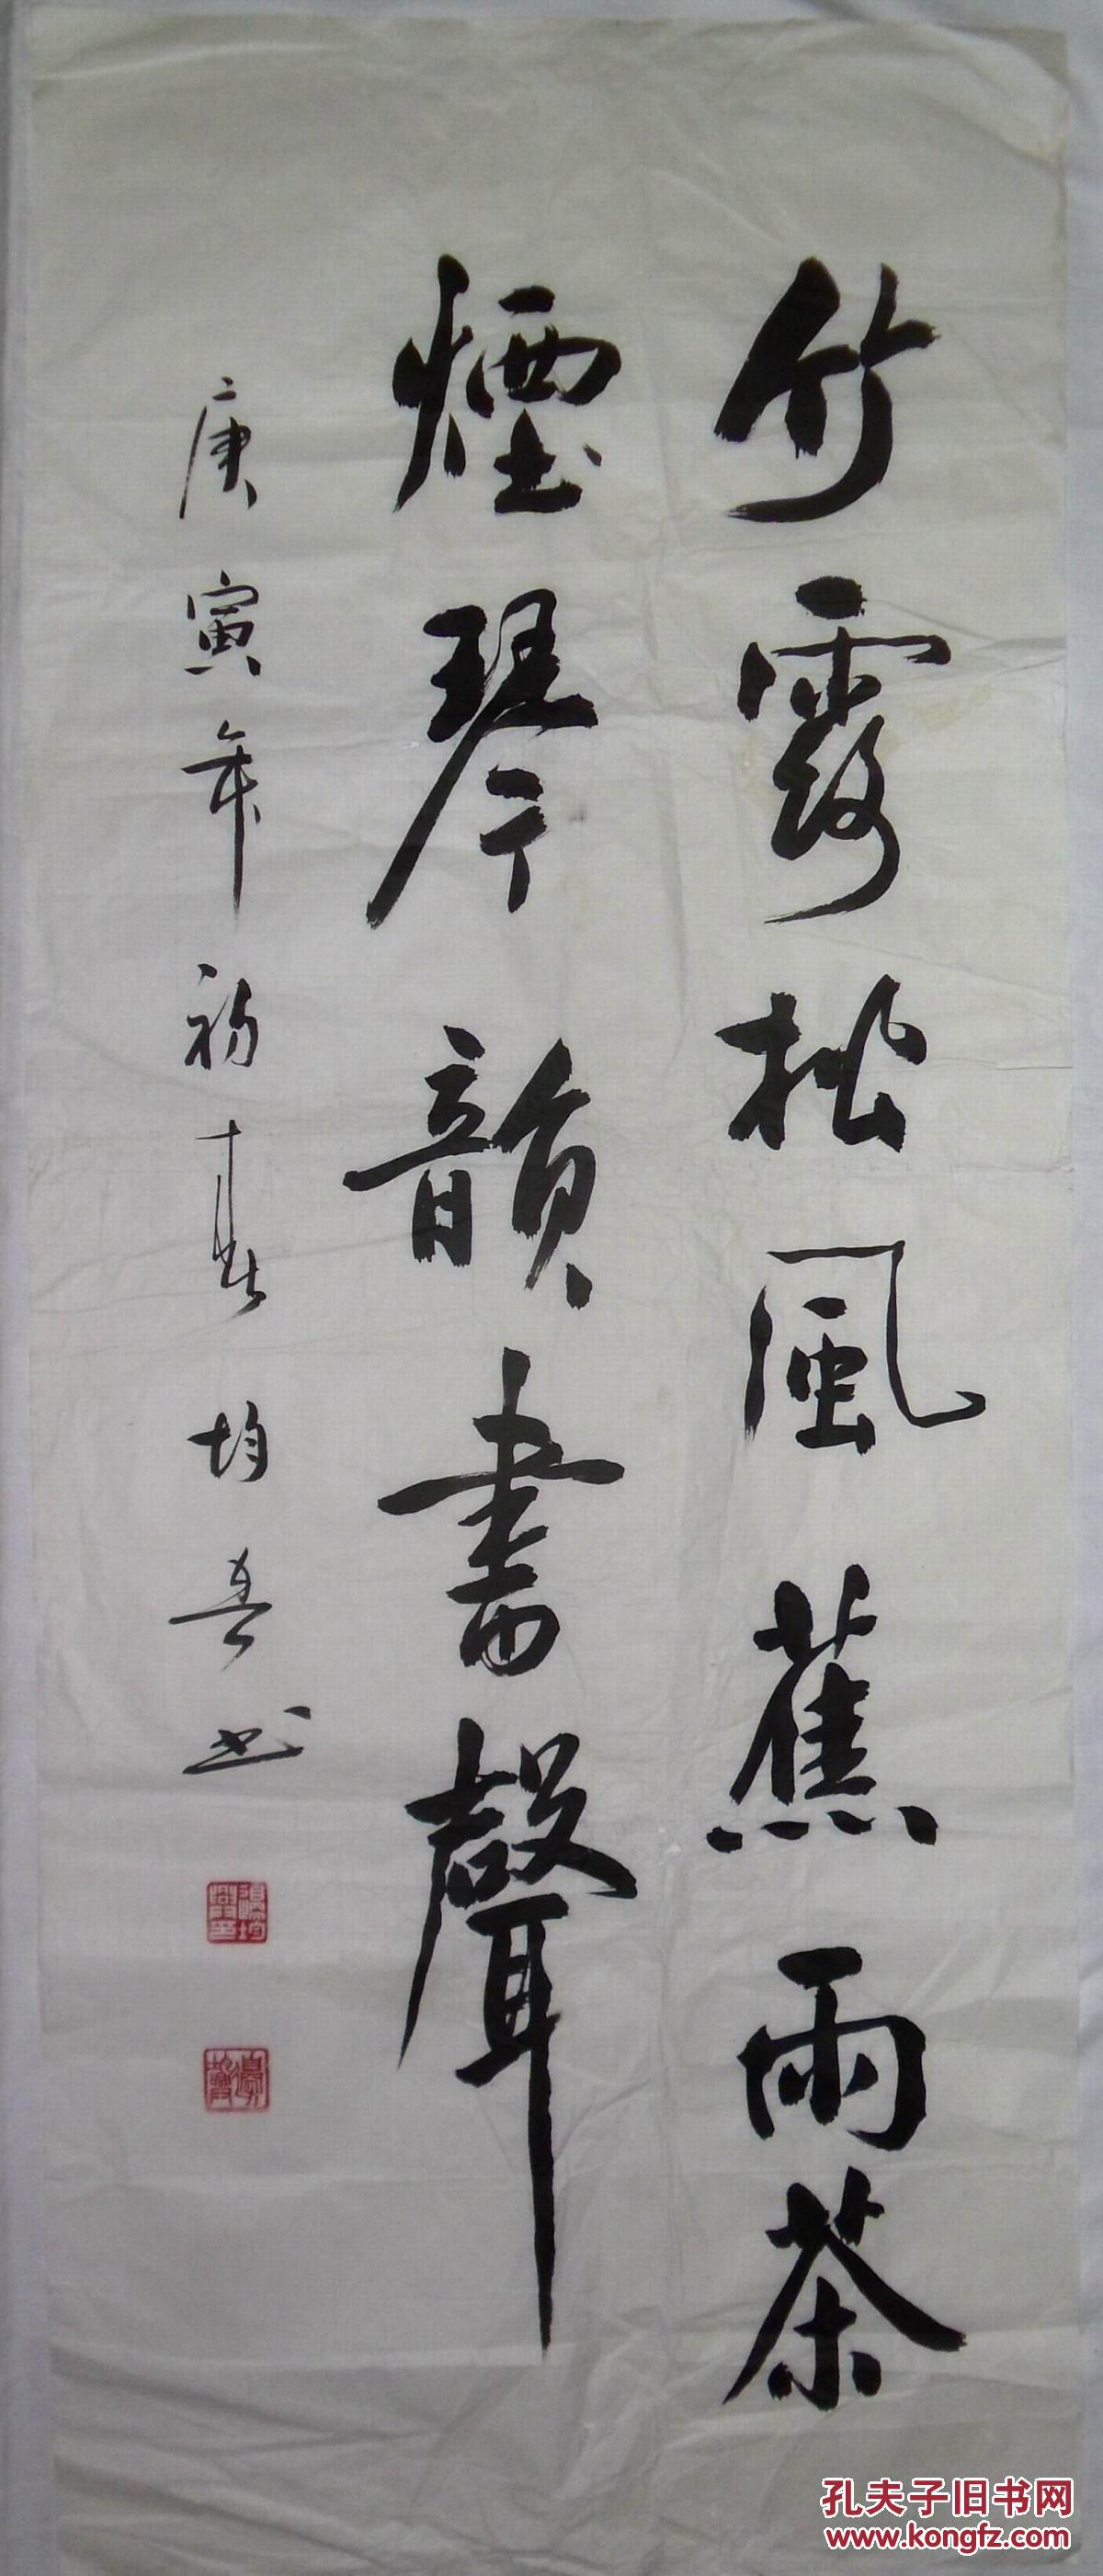 竹露松風蕉雨茶
煙琴韻書聲
庚寅年初春均善书
孔夫子旧书网
www.kongfz.com